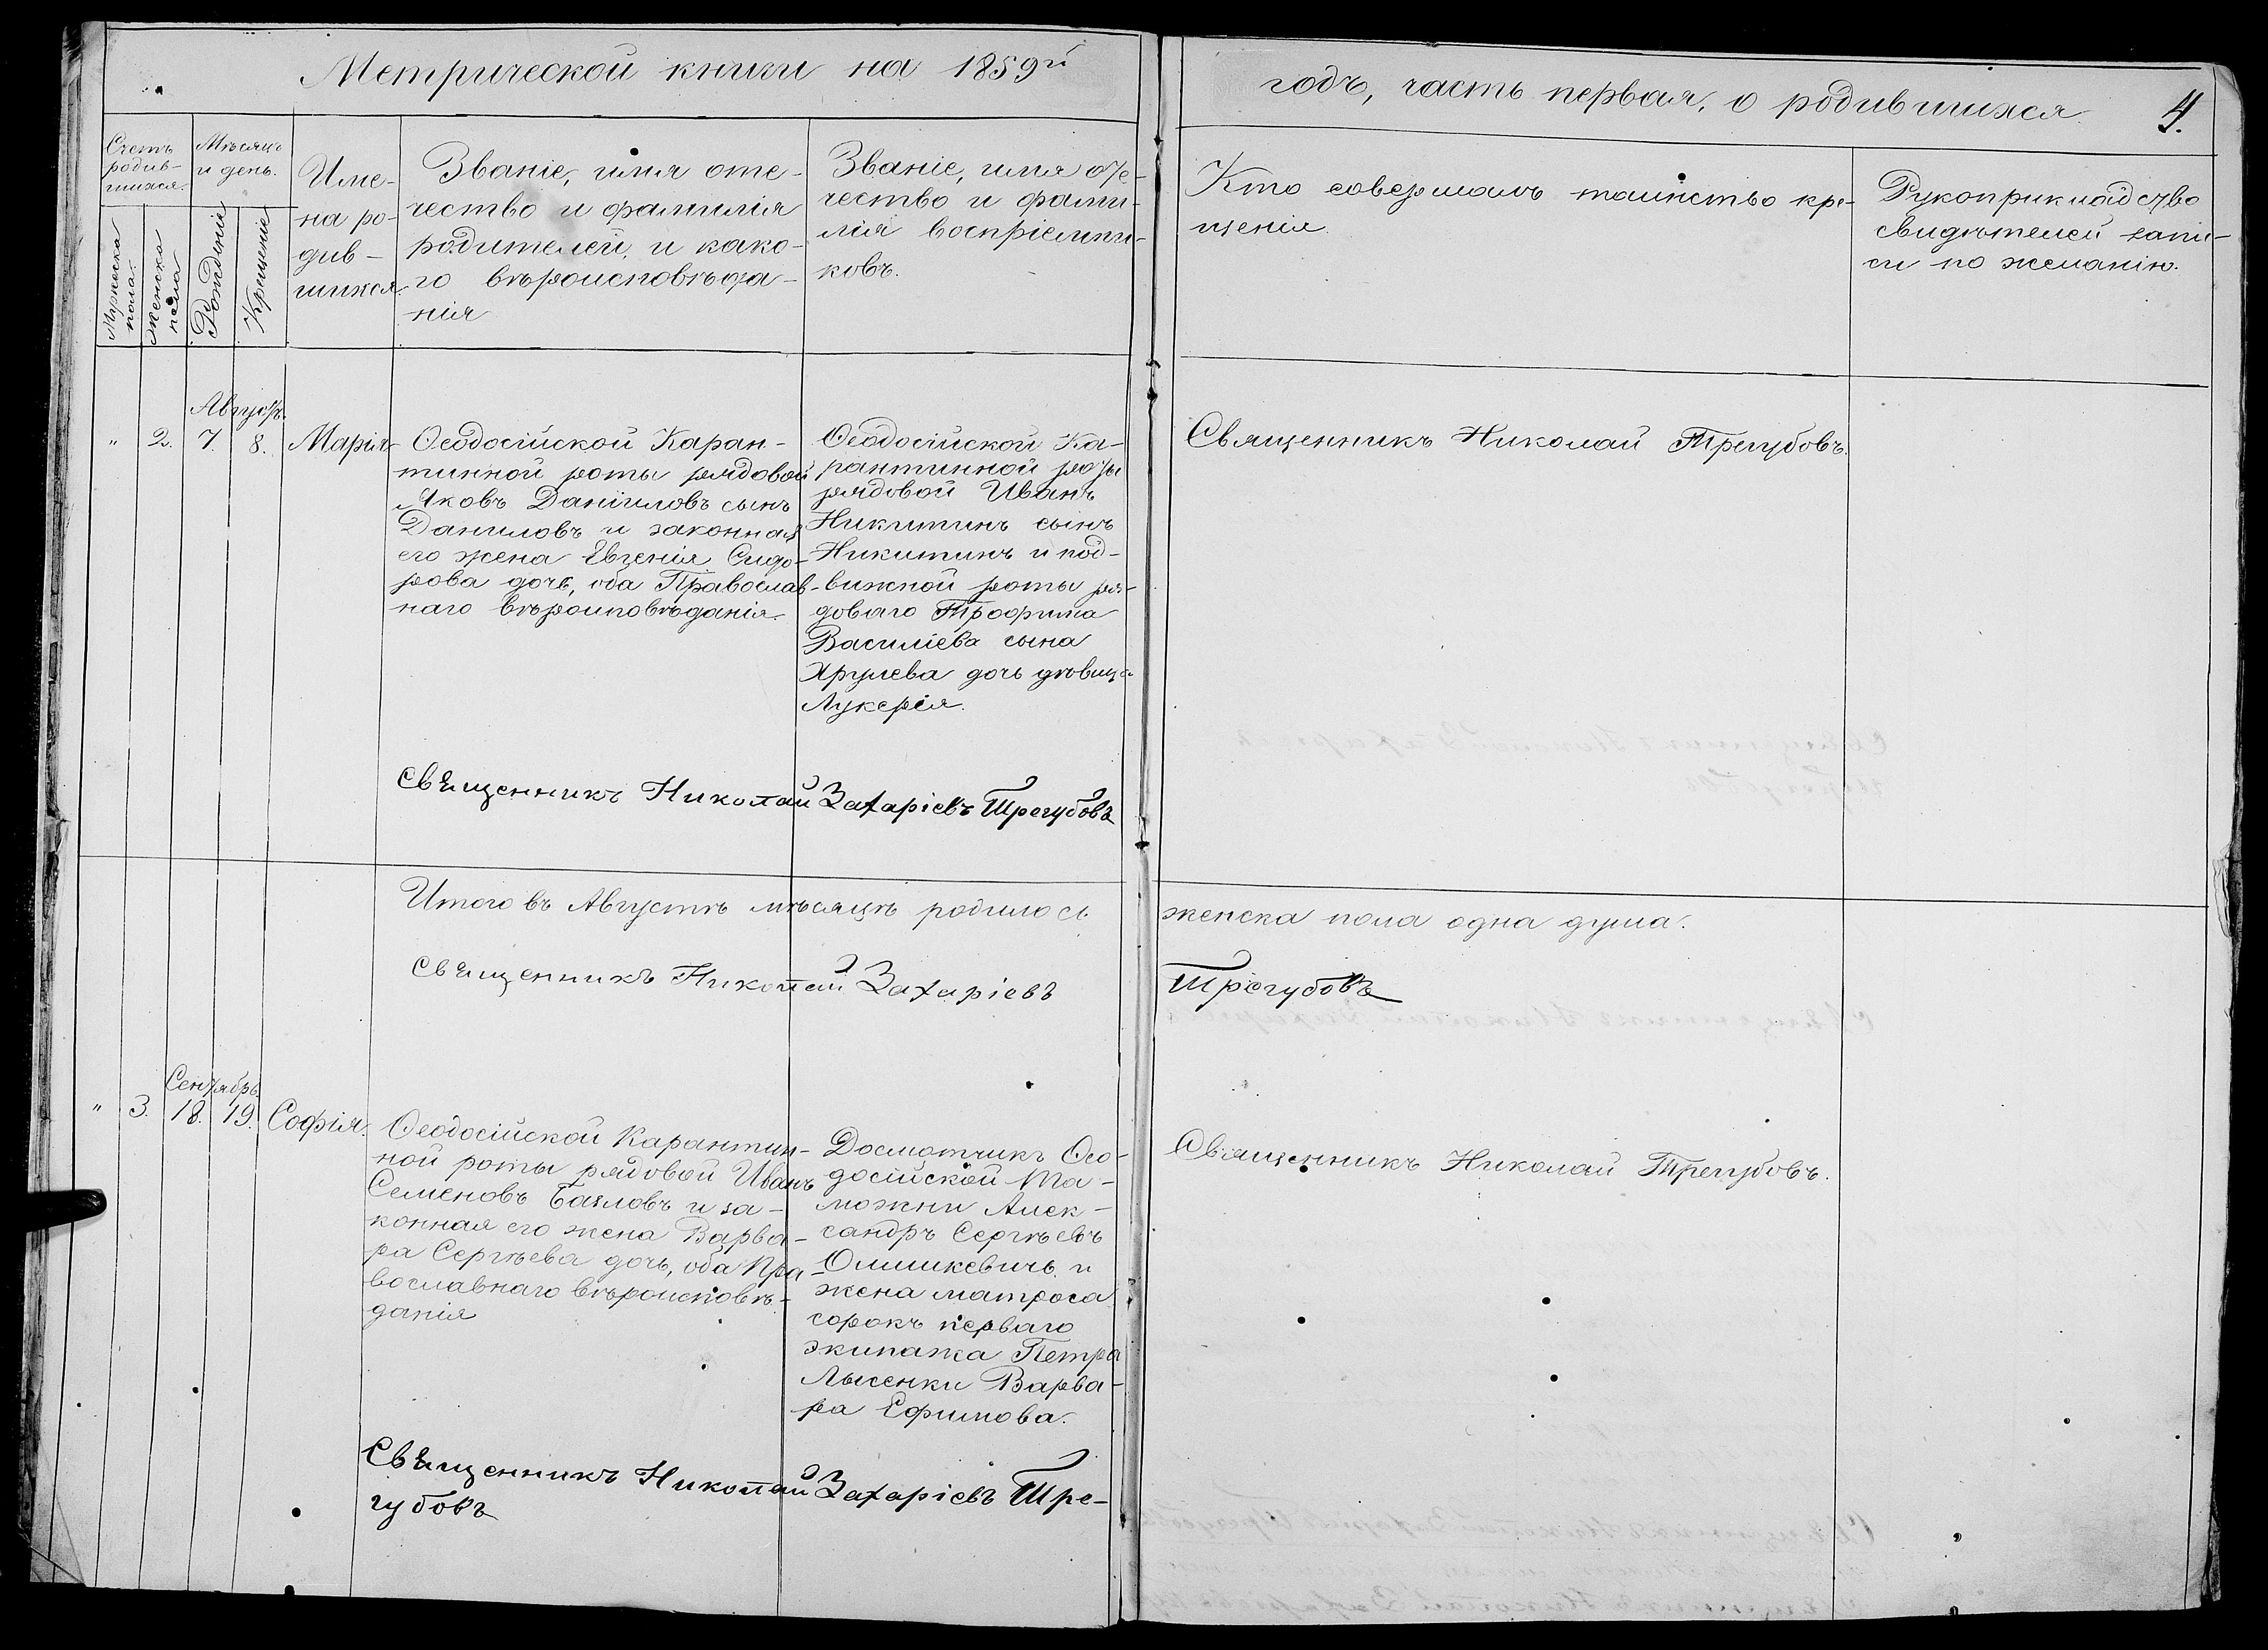 Метрической книги на 1859й
годъ, часть первая, о родившихся.
4.
Счетъ
родив-
шихся.
Мѣсяцъ
и день.
Мужеска
пола.
Женска
пола
Рожденіе
Крещеніе
Име-
на ро-
див-
шихся.
Званіе, имя оте-
чество и фамилія
родителей, и како-
го вѣроисповѣда-
нія
Званіе, имя оте-
чество и фами-
лія воспріемни-
ковъ.
Кто совершалъ таинство кре-
щенія.
Рукоприкладство
свидѣтелей запи-
си по желанію.
Августъ.
" 2. 7. 8. Марія
Ѳеодосійской Каран-
тинной роты рядовой
Яковъ Даніиловъ сынъ
Даниловъ и законная
его жена Евгенія Сидо-
рова дочь, оба Православ-
наго вѣроиповѣданія.
Ѳеодосійской Ка-
рантинной роты
рядовой Иванъ
Никитинъ сынъ
Никитинъ и под-
вижной роты ря-
доваго Трофима
Василіева сына
Хрулева дочь дѣвица
Лукерія.
Священникъ Николай Трегубовъ.
Священникъ Николай Захаріевъ Трегубовъ
Итого въ Августѣ мѣсяцѣ родилось
женска пола одна душа.
Священникъ Николай Захаріевъ
Трегубовъ
Сентябрь.
" 3. 18. 19. Софія.
Ѳеодосійской Карантин-
ной роты рядовой Иванъ
Семеновъ Баяловъ и за-
конная его жена Варва-
ра Сергѣева дочь, оба Пра-
вославнаго вѣроисповѣ-
данія
Досмотчикъ Ѳео-
досійской Та-
можни Алек-
сандръ Сергѣевъ
Олишкевичъ и
жена матроса
сорокъ перваго
экипажа Петра
Лысенки Варва-
ра Ефимова.
Священникъ Николай Трегубовъ.
Священникъ Николай Захаріевъ Тре-
губовъ